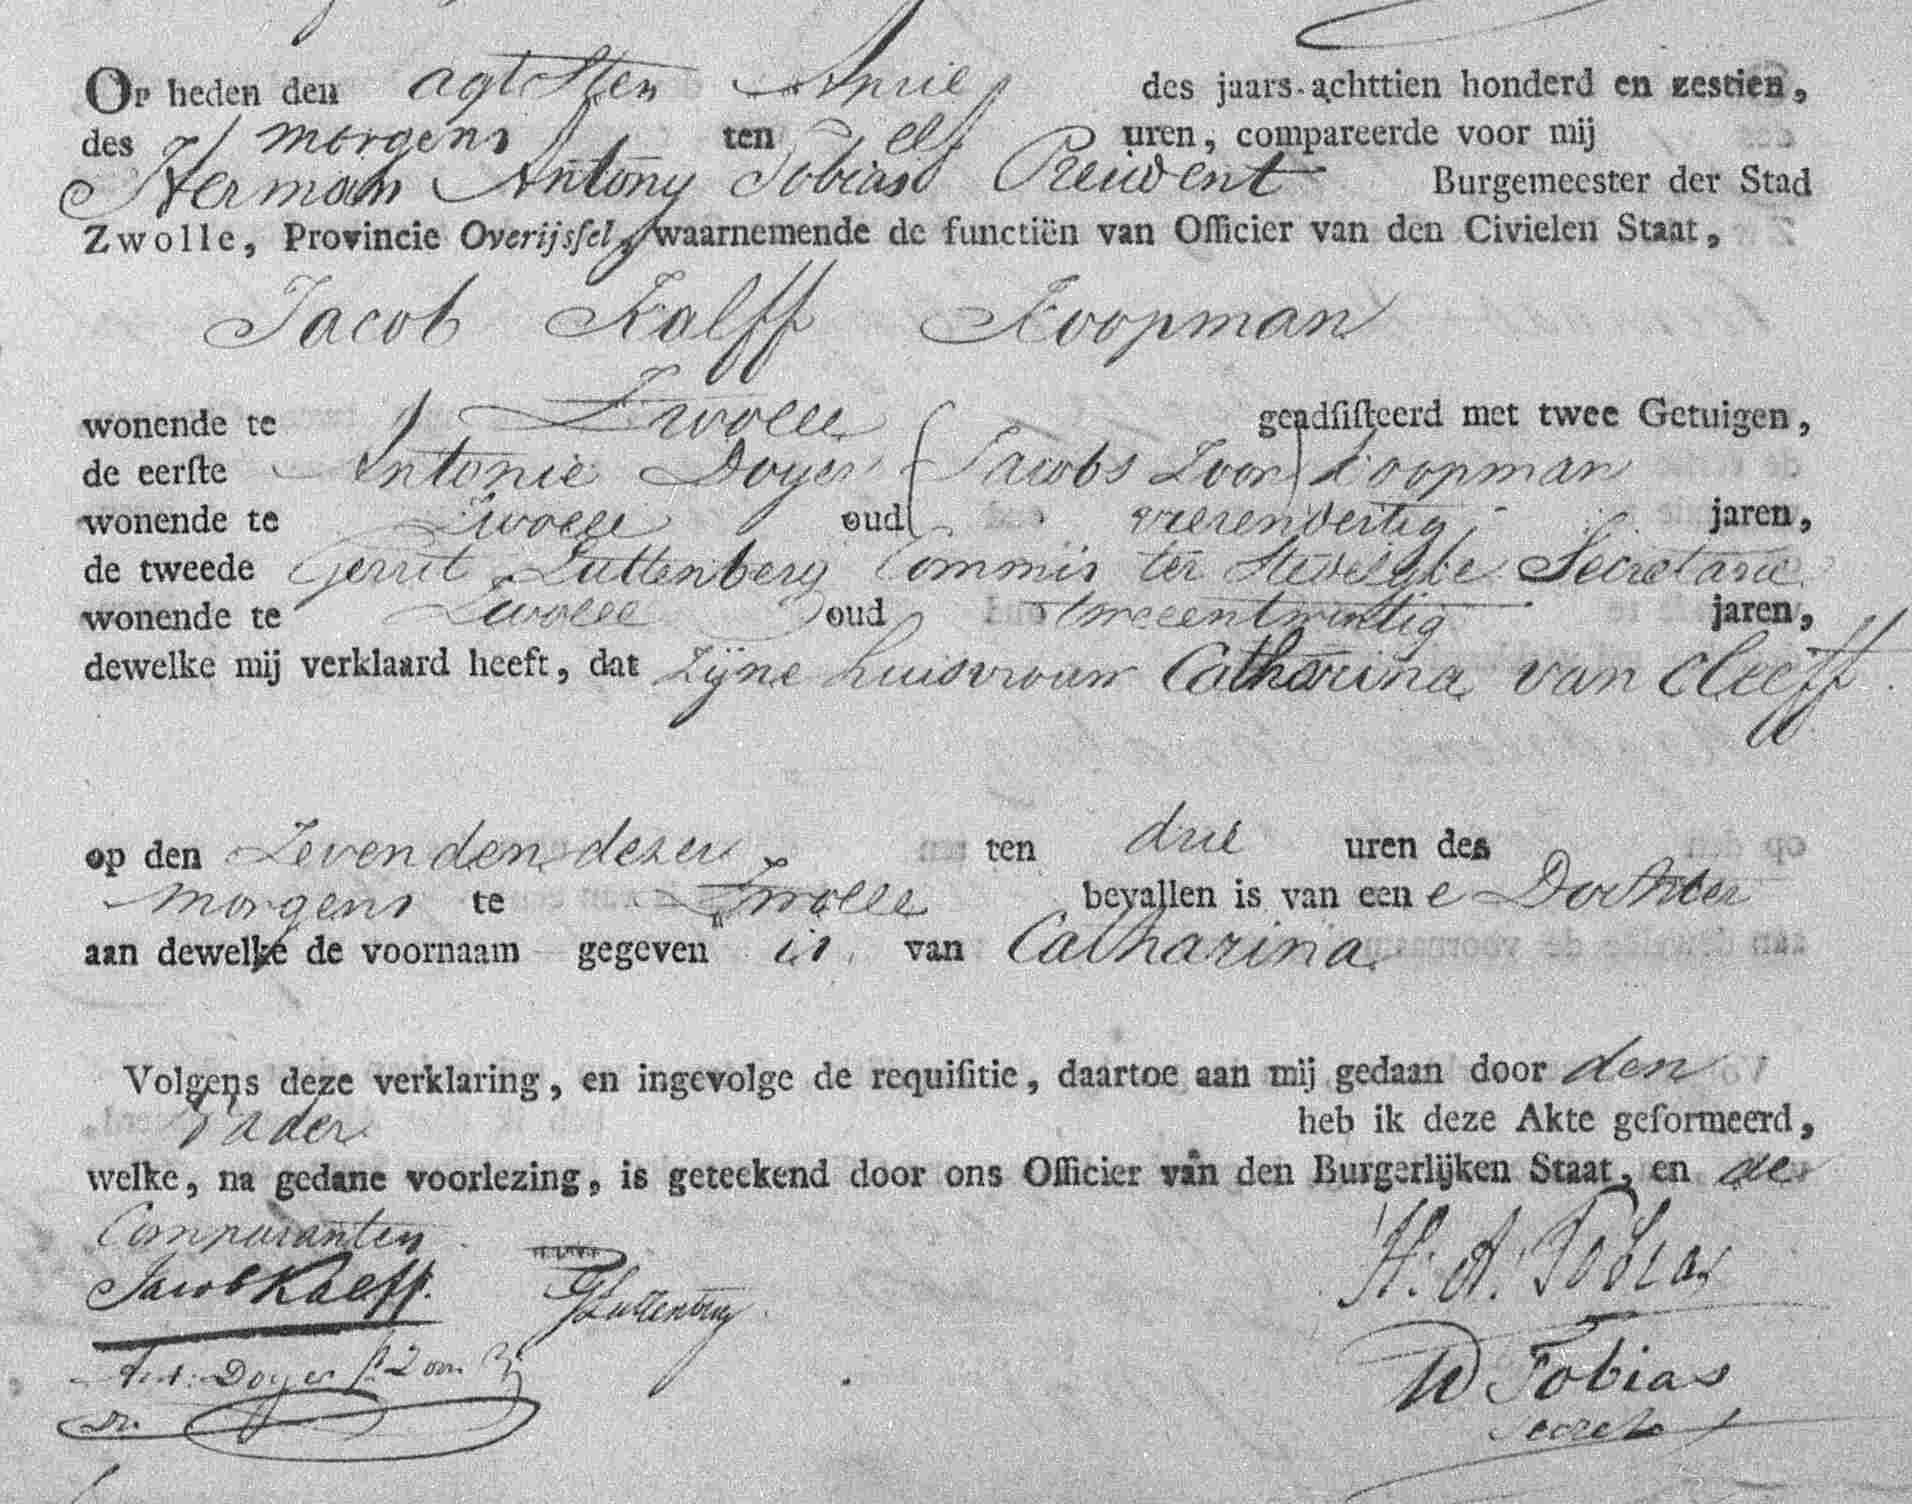 Op heden den agtsten April des jaars achttien honderd en zestien,
des morgens ten elf uren, compareerde voor mij
Herman Antony Tobias President Burgemeester der Stad
Zwolle, Provincie Overijsſel, waarnemende de functiën van Officier van den Civielen Staat,
Jacob Kalff Koopman
wonende te Zwolle geadſiſteerd met twee Getuigen,
de eerſte Antonie Doyer (Jacobs Zoon) Koopman
wonende te Zwolle oud vierendertig jaren,
de tweede Gerrit Luttenberg Commis ter Stedelyke Secretarie
wonende te Zwolle oud tweeentwintig jaren,
dewelke mij verklaard heeft, dat zijne huisvrouw Catharina van Cleeff
op den Zevenden dezer ten drie uren des
morgens te Zwolle bevallen is van een e Dochter
aan dewelke de voornaam gegeven is van Catharina
Volgens deze verklaring, en ingevolge de requiſitie, daartoe aan mij gedaan door den
Vader heb ik deze Akte geformeerd,
welke, na gedane voorlezing, is geteekend door ons Officier van den Burgerlijken Staat, en de
Comparanten
Jacob Kalff.
G Luttenberg
H. A. Tobias
Ant: Doyer
W Tobias
Secret